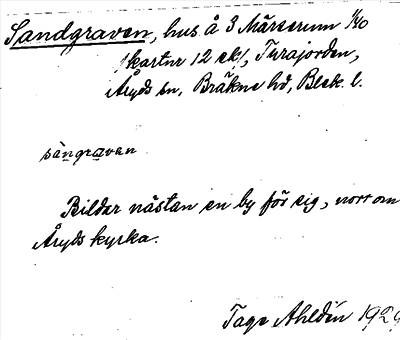 Sandgraven, hus å 3 Märserum 1/40
(kartnr 12 ek), Tararajorden,
Åryds sn, Bräkne hd, Blek. l.
sàngravan
Bildar nästan en by för sig, norr om
Åryds kyrka.
Tage Ahldin 1929